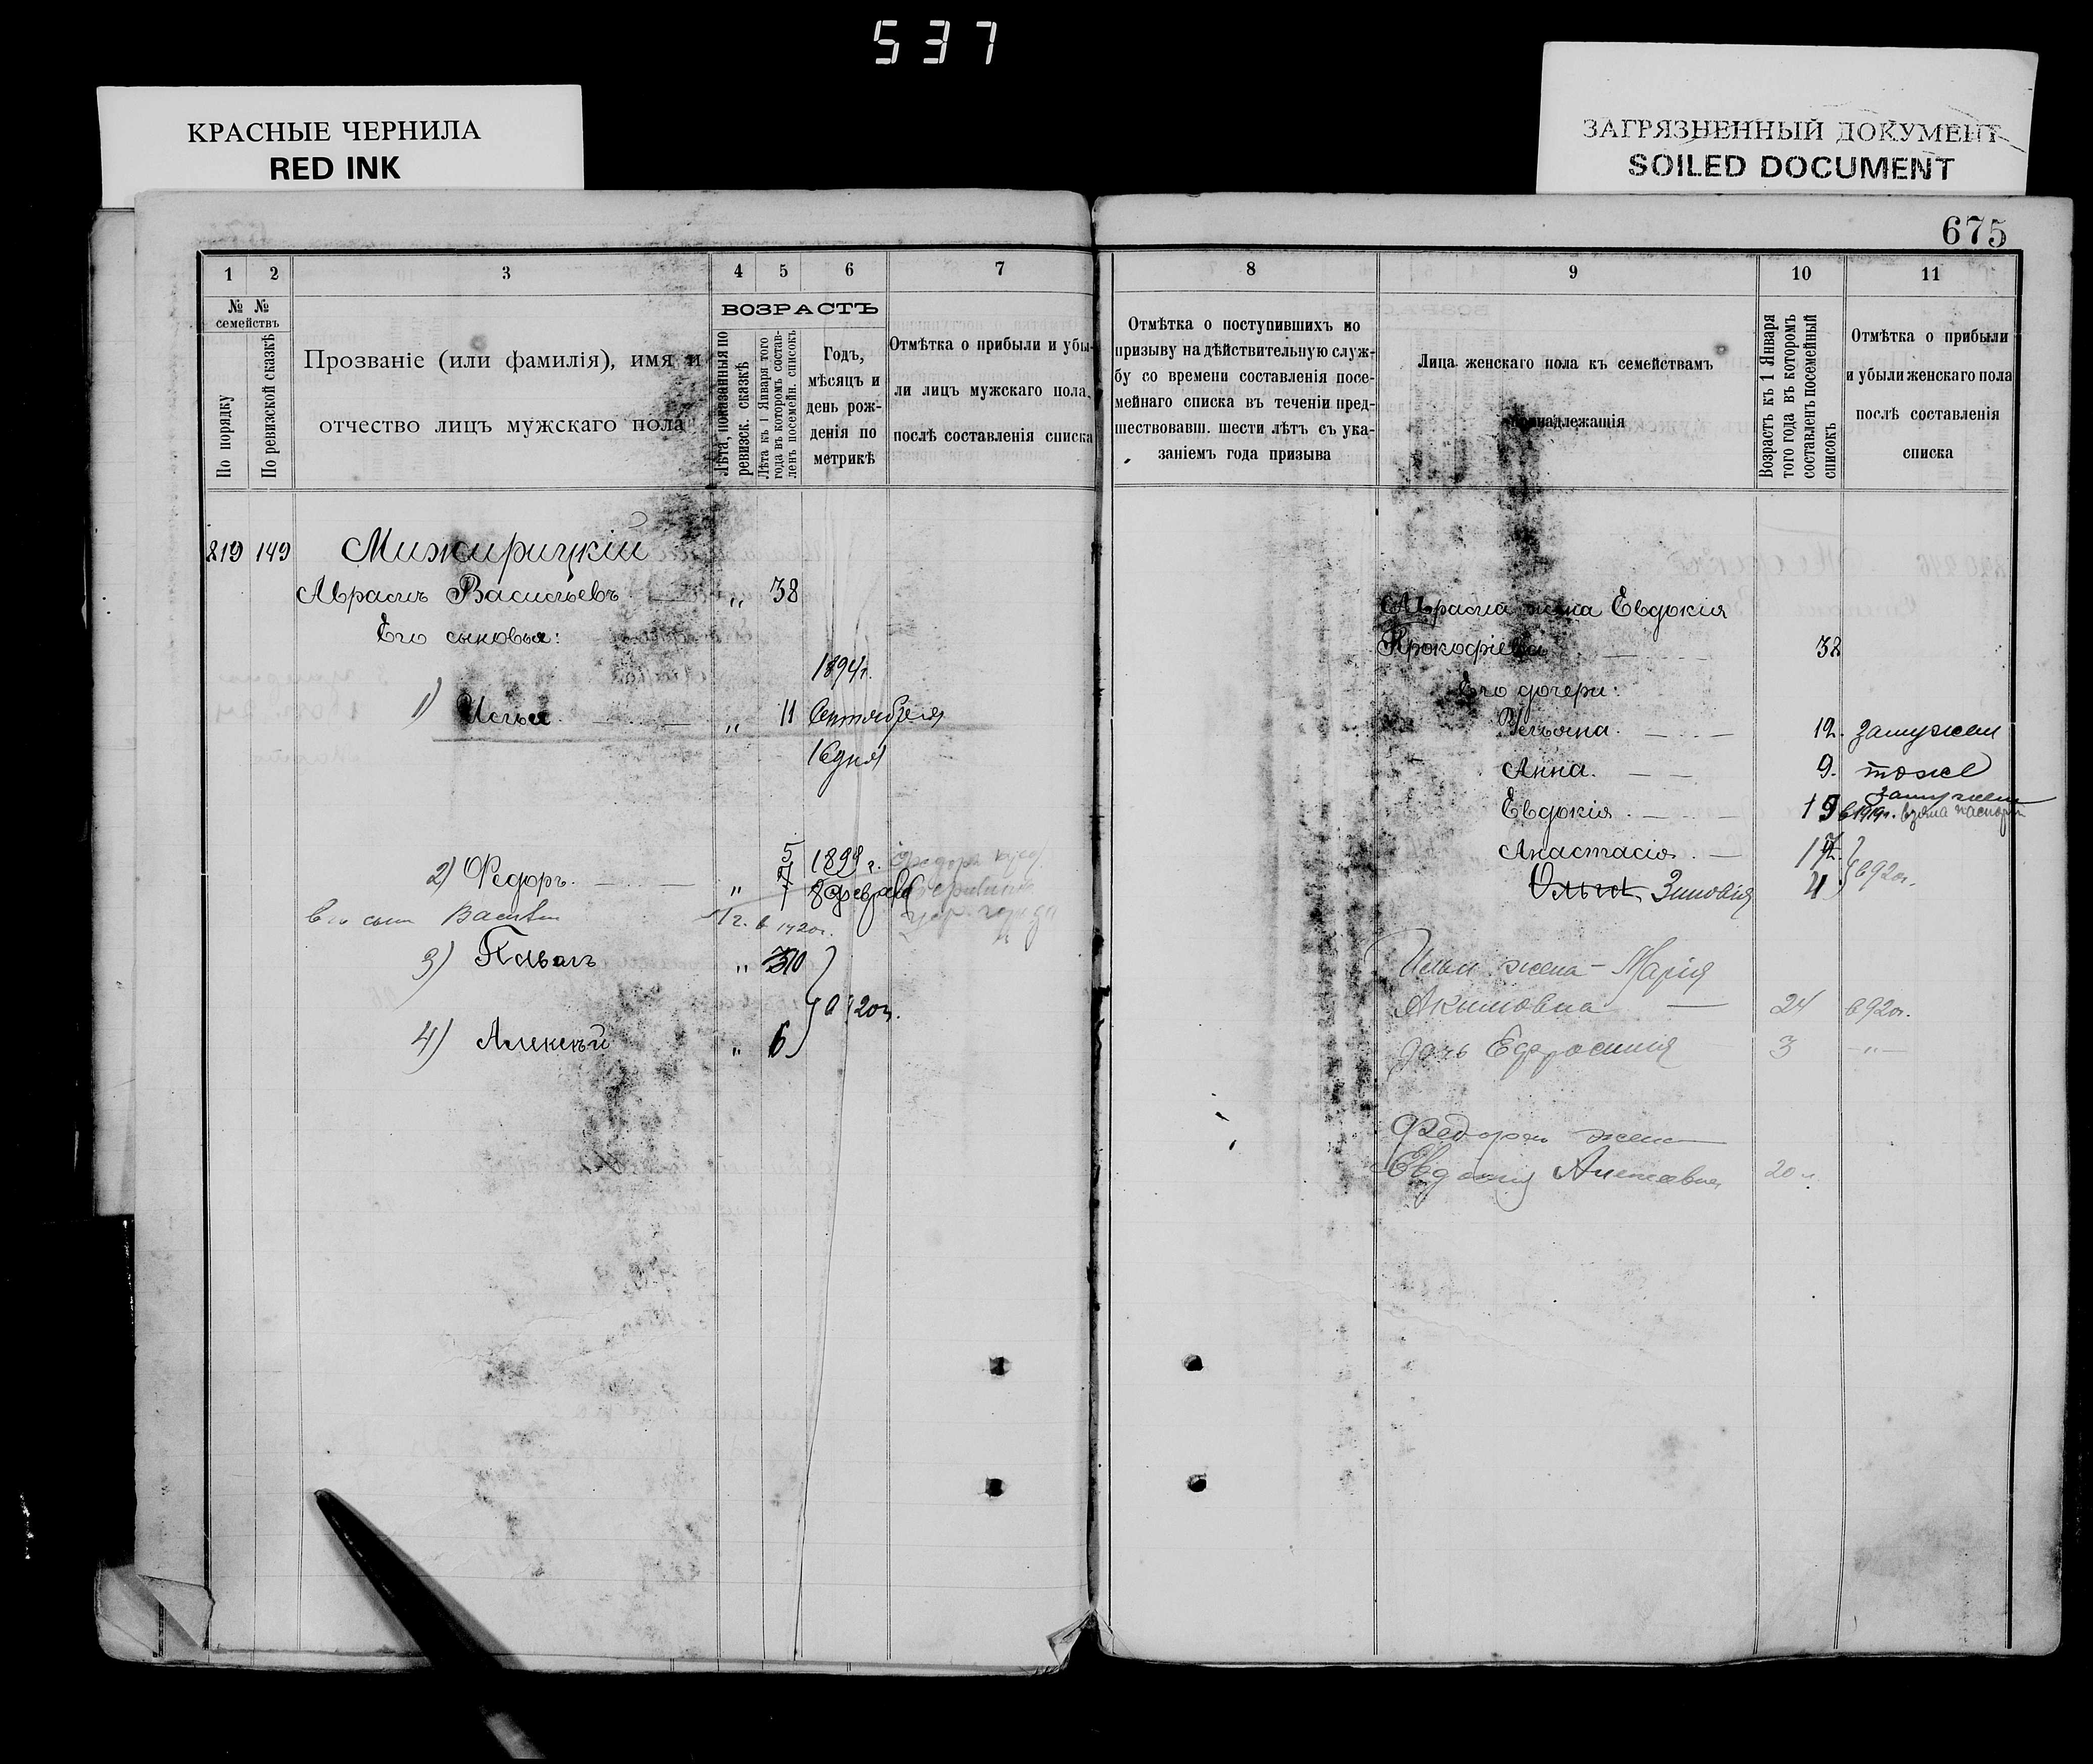 537
КРАСНЫЕ ЧЕРНИЛА
RED INK
ЗАГРЯЗНЕННЫЙ ДОКУМЕНТ
SOILED DOCUMENT
675
1 2 3 4 5 6 7
№ № семействъ
По порядку
По ревизской сказкѣ
Прозваніе (или фамилія), имя и
отчество лицъ мужскаго пола
ВОЗРАСТЪ
Лѣта, показанныя по
ревизск. сказкѣ
Лѣта къ 1 Января того
года въ которомъ состав-
ленъ посемейн. списокъ
Годъ,
мѣсяцъ и
день рож-
денія по
метрикѣ
Отмѣтка о прибыли и убы-
ли лицъ мужскаго пола,
послѣ составленія списка
819 149 Мижирицкій
Авраамъ Васильевъ " 38
Его сыновья:
1894г.
1) Илья " 11 Сентября
16 дня
5 1899 г.
2) Федоръ " 7 8 февраля
Его сынъ 1 г. в 1920г.
3) Павелъ " 10
в 920г.
4) Алексѣй " 6
8 9 10 11
Отмѣтка о поступившихъ по
призыву на дѣйствительную служ-
бу со времени составленія посе-
мейнаго списка въ теченіи пред-
шествовавш. шести лѣтъ съ ука-
заніемъ года призыва
Лица женскаго пола къ семействамъ
принадлежащія
Возрастъ къ 1 Января
того года въ которомъ
составленъ посемейный
списокъ
Отмѣтка о прибыли
и убыли женскаго пола
послѣ составленія
списка
Авраама жена Евдокія
Прокофіева 38
Его дочери:
Ульяна 12. замужем
Анна. 9. тоже
замужем
Евдокія 19 в 1919г. взяла паспорт
Анастасія 17
Ольга Зиновія 4 в 920г.
Ильи жена - Марія
Акимовна 24 в 920г.
дочь Ефросинія 3 — " —
Федора жена
Евдокия 20